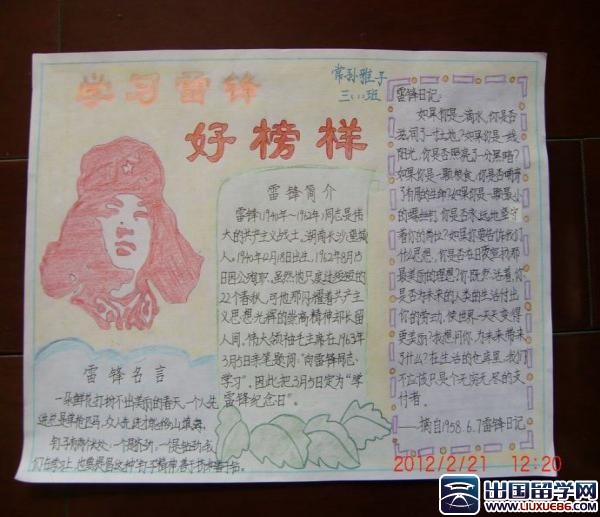 学习雷锋
好榜样
常孙雅子
三(1)班
雷锋简介
雷锋(1940年—1962年)同志是伟
大的共产主义战士。湖南长沙望城
人。1940年12月18日出生。1962年8月15
日因公殉职。虽然他只度过短暂的
22个春秋,可他那闪耀着共产主
义思想光辉的崇高精神却长留
人间。伟大领袖毛主席在1963
年3月5日亲笔题词:“向雷锋同志
学习”。因此把3月5日定为“学
雷锋纪念日”。
雷锋名言
一朵鲜花打扮不出美丽的春天,一个人先
进总是单枪匹马,众人先进才能移山填海。
钉子有两个长处:一个是挤劲,一个是钻劲,我
们在学习上,也要提倡这种“钉子”精神,善于挤和善于钻。
雷锋日记:
如果你是一滴水,你是否
滋润了一寸土地?如果你是一线
阳光,你是否照亮了一分黑暗?
如果你是一颗粮食,你是否哺育
了有用的生命?如果你是一颗最小
的螺丝钉,你是否永远地坚守
着你的岗位?如果你要告诉我们
什么思想,你是否在日夜宣扬那
最美丽的理想?你既然活着,你
是否为未来的人类的生活付出
你的劳动,使世界一天天变得
更美丽?我想问你,为未来带来
了什么?在生活的仓库里,我们
不应该只是个无穷无尽的支
付者。
——摘自1958.6.7雷锋日记
2012/2/21 12:20
出国留学网
WWW.LIUXUE86.COM